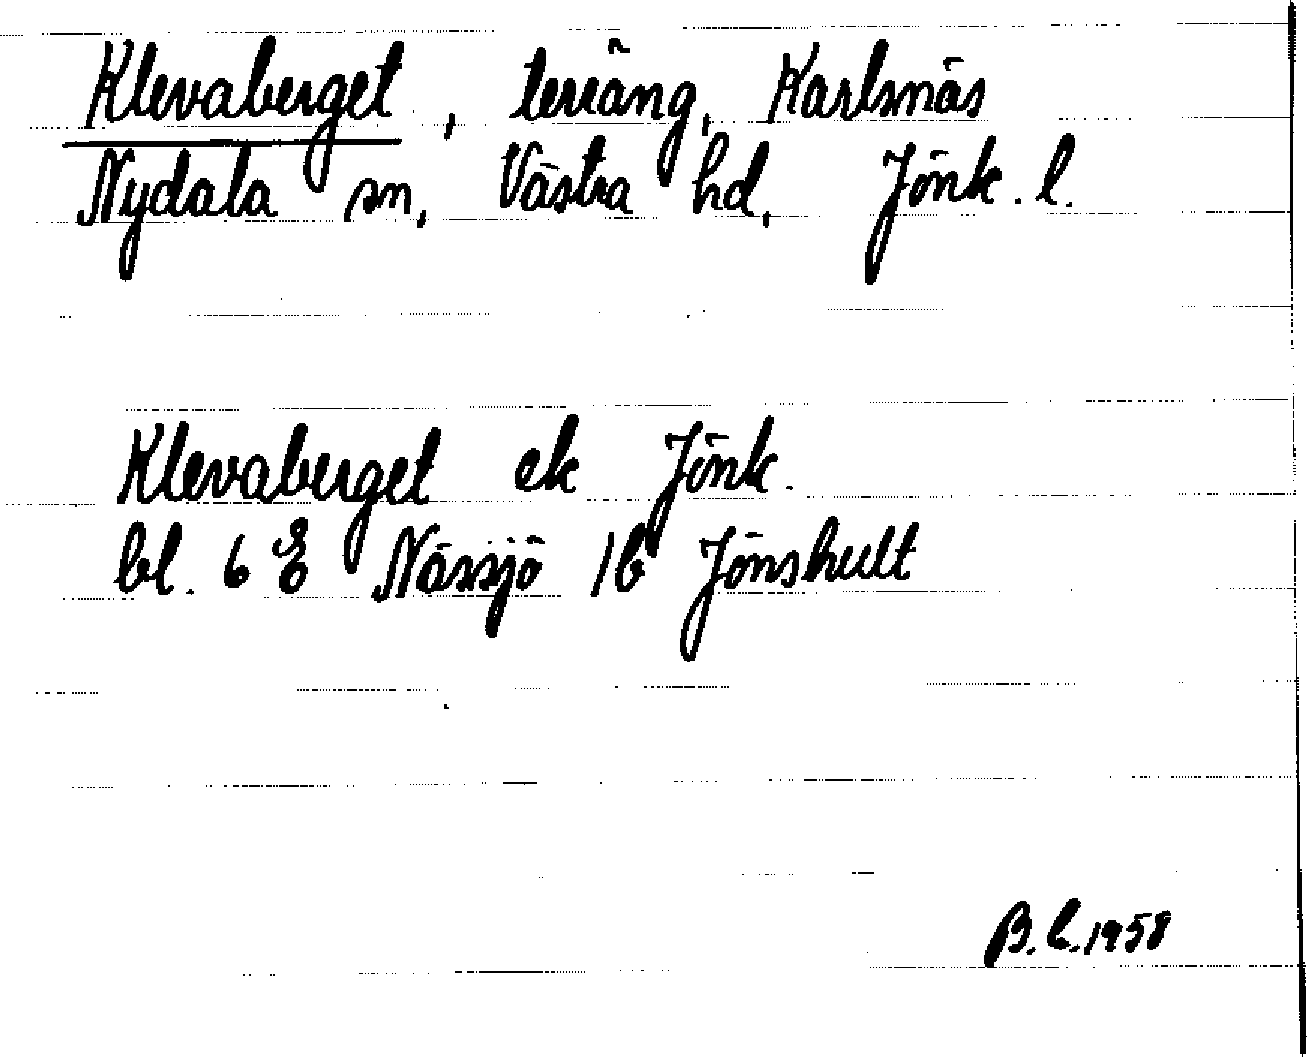 Klevaberget, terräng, Karlsnäs
Nydala sn, Västra hd, Jönk. l.
Klevaberget ek Jönk.
bl. 6 E Nässjö 1b Jönshult
B.L. 1958